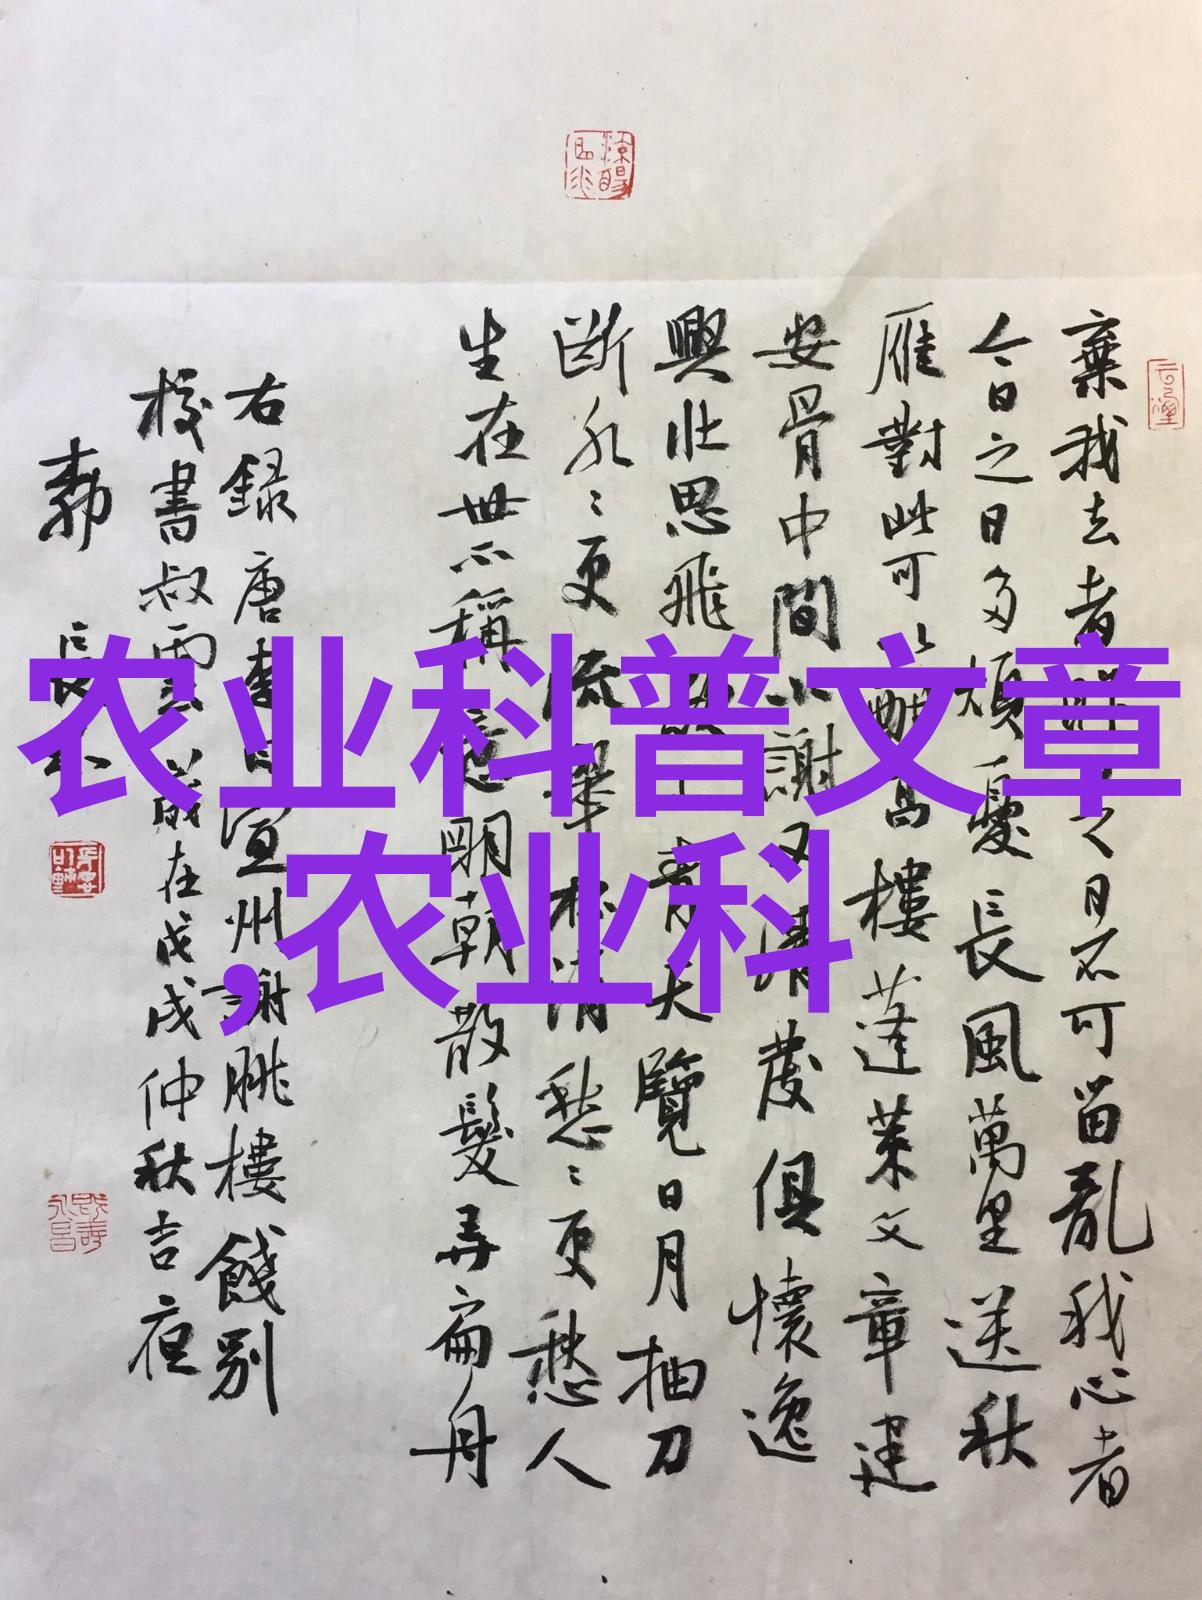 棄我去者昨之日不可留亂我心者
今日之日多煩憂長風萬里送秋
雁對此可以酣高樓蓬萊文章建
安骨中間小謝又清發俱懷逸
興壯思飛欲上青天覽日月抽刀
斷水〻更流舉杯消愁〻更愁人
生在世不稱意明朝散髮弄扁舟
右録唐李白宣州謝朓樓餞別
校書叔雲歲在戊戌仲秋吉夜
农业科普文章
,农业科